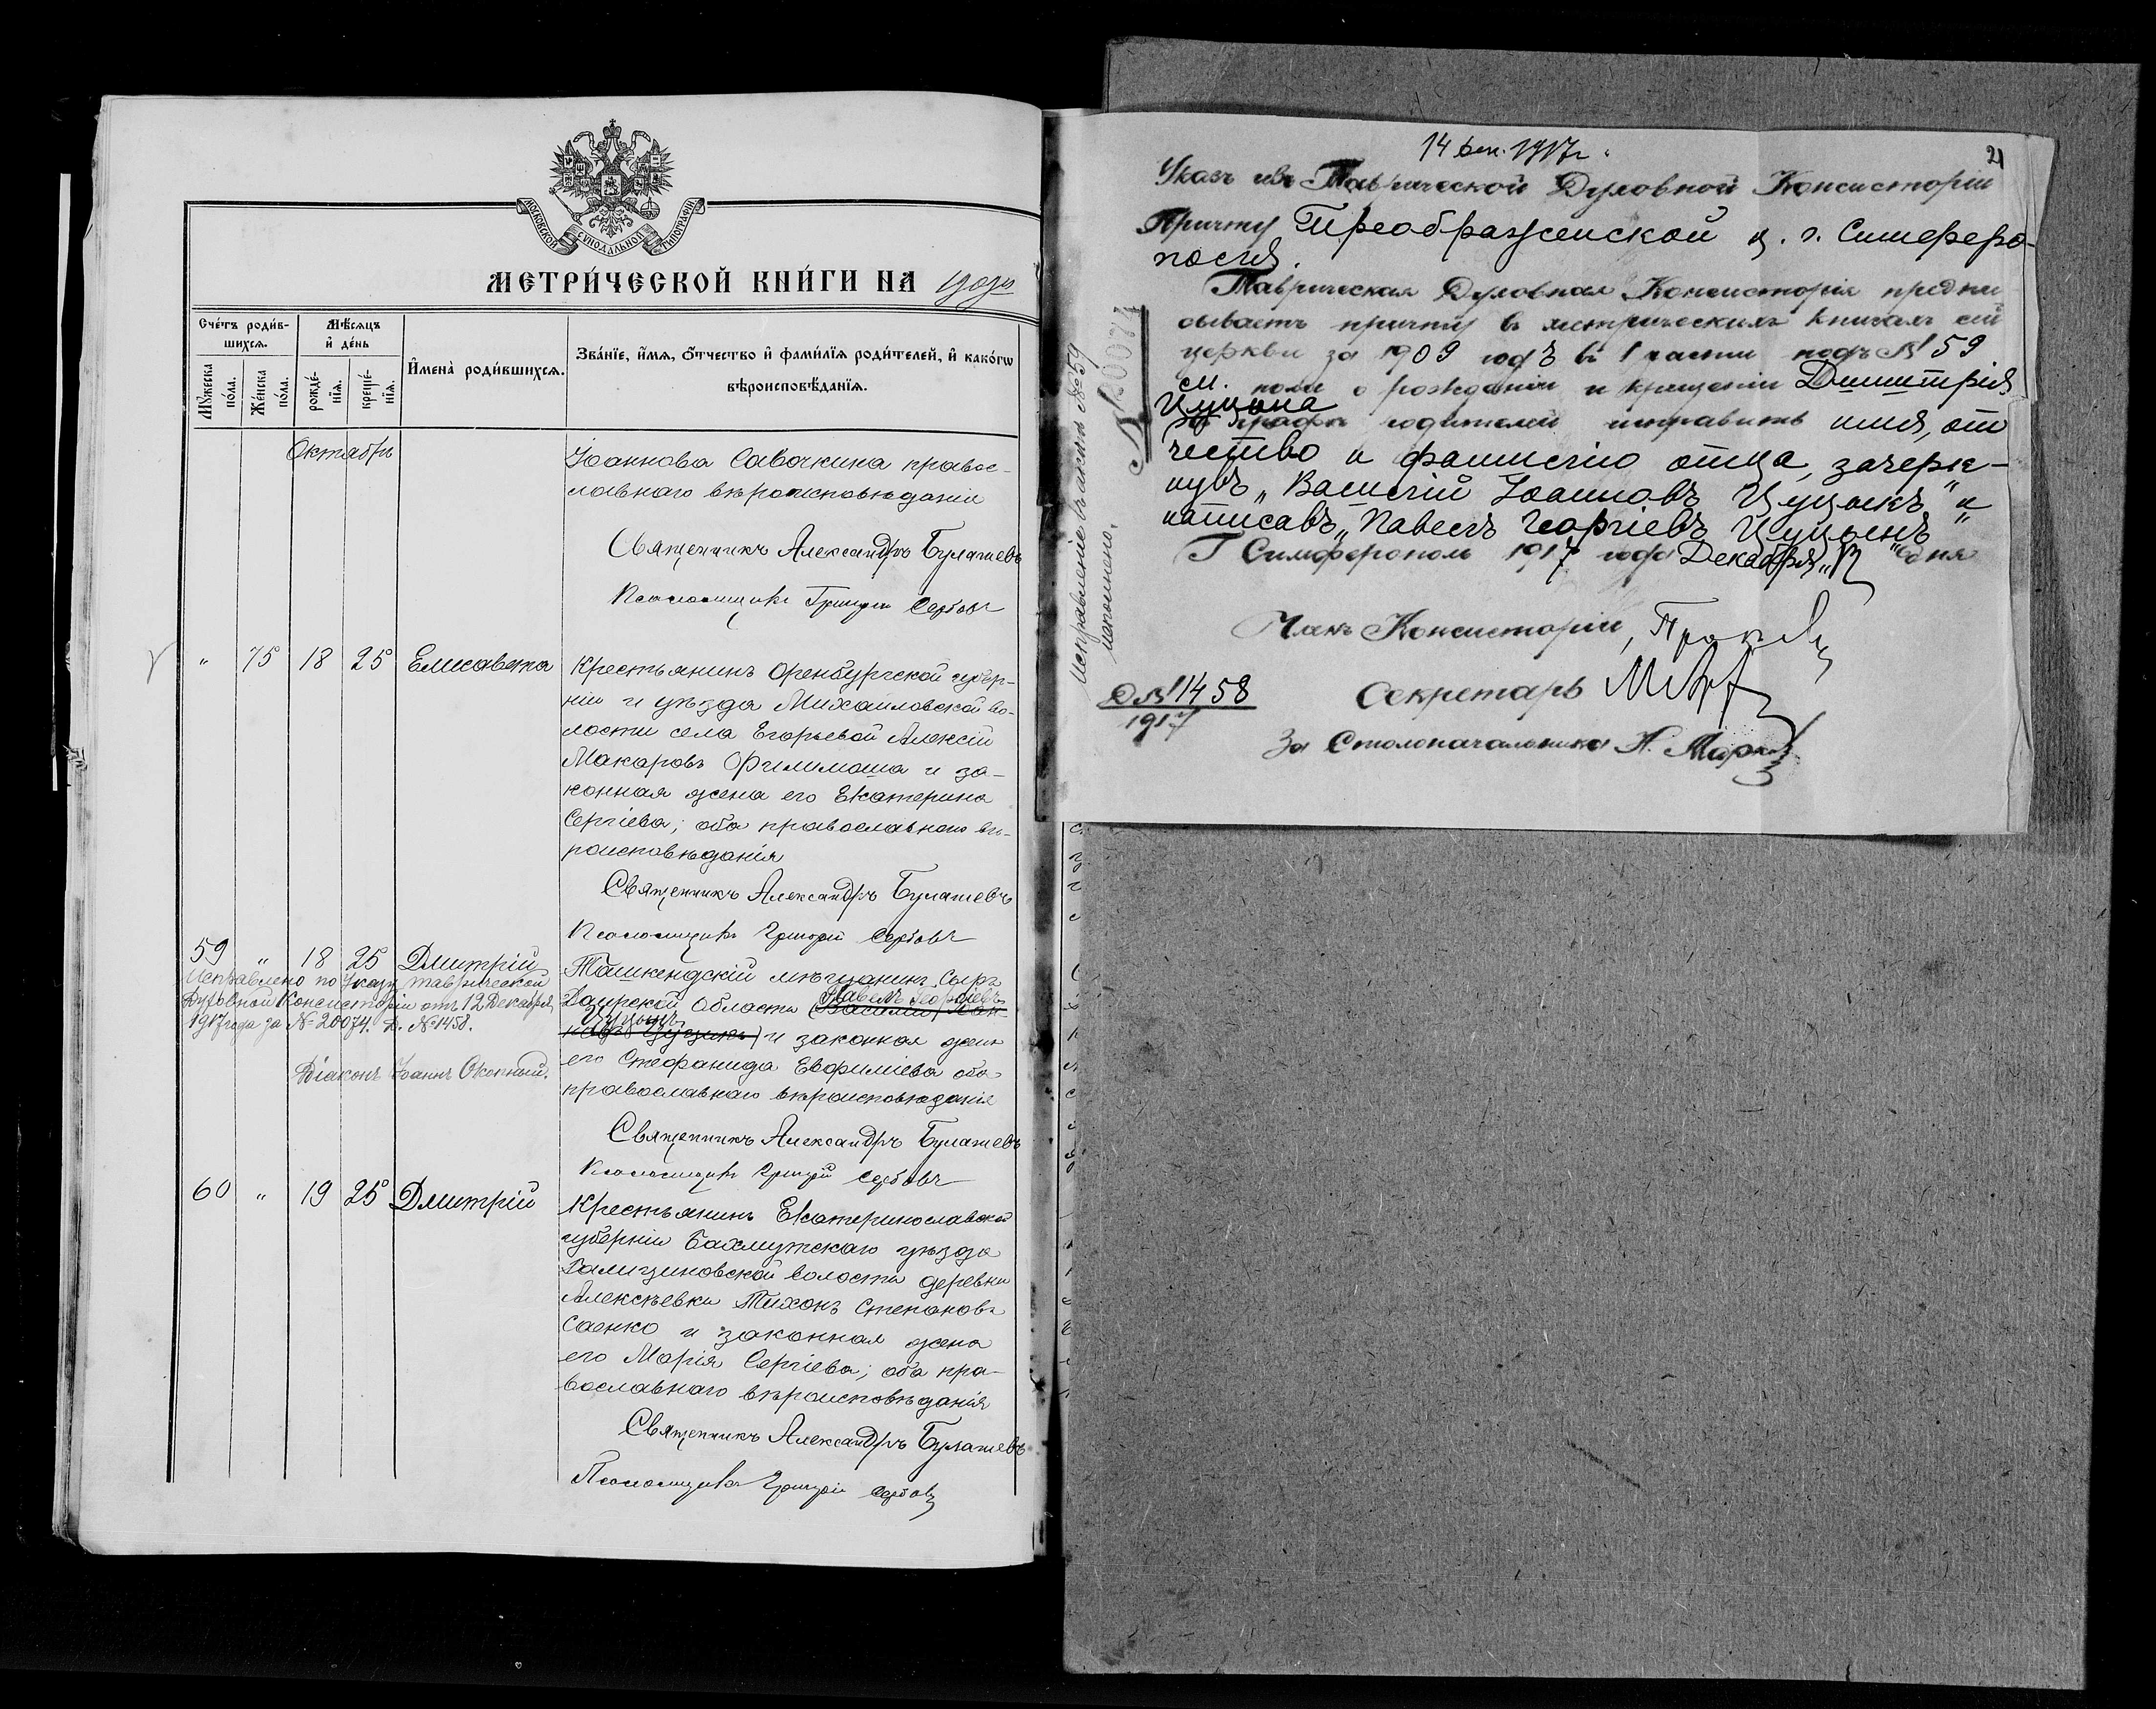 МОСКОВСКОЙ СѴНОДАЛЬНОЙ ТИПОГРАФІИ
МЕТРИ́ЧЕСКОЙ КНИ́ГИ НА 1909
Сче́тъ роди́в-
шихсѧ.
Мѣ́сѧцъ
и҆ де́нь
И҆мена̀ роди́вшихсѧ.
Зва́нїе, и҆́мѧ, ѻ҆́тчество и҆ фами́лїѧ роди́телей, и҆ како́гѡ
вѣроисповѣ́данїѧ.
Мꙋ́жеска
по́ла.
Же́нска
по́ла.
рожде́-
нїѧ.
креще́-
нїѧ.
Октябрь
Іоаннова Савочкина правос-
лавнаго вѣроисповѣданія
Священникъ Александръ Булашевъ
Псаломщикъ Григорій Сербовъ
" 75 18 25 Елисавета
Крестьянинъ Оренбургской губер-
ніи и уѣзда Михайловской во-
лости села Егорьевой Алексій
Макаровъ Филимоша и за-
конная жена его Екатерина
Сергіева; оба православнаго вѣ-
роисповѣданія
Священникъ Александръ Булашевъ
Псаломщикъ Григорій Сербовъ
59 " 18 25 Дмитрій
Исправлено по Указу Таврической
Духовной Консисторіи отъ 12 Декабря
1917 года за № 20074. Д. № 1458.
Діаконъ Іоаннъ Оконный.
Ташкендскій мѣщанинъ Сыръ
Дарьской Области Павелъ Георгіевъ
(Василій Іоан-
Цуцынъ
новъ Цуцыкъ) и законная жена
его Стефанида Евфиміева оба
православнаго вѣроисповѣданія
Священникъ Александръ Булашевъ
Псаломщикъ Григорій Сербовъ
60 " 19 25 Дмитрій
Крестьянинъ Екатеринославской
губерніи Бахмутскаго уѣзда
Галициновской волости деревни
Алексѣевки Тихонъ Степановъ
Саенко и законная жена
его Марія Сергіева; оба пра-
вославнаго вѣроисповѣданія
Священникъ Александръ Булашевъ
Псаломщикъ Григорій Сербовъ
14 дек. 1917 г.
21
Указъ изъ Таврической Духовной Консисторіи
Причту Преображенской ц. г. Симферо-
поля.
Таврическая Духовная Консисторія предпи-
сываетъ причту въ метрическихъ книгахъ сей
церкви за 1909 годъ въ I части подъ № 59
м. пола о рожденіи и крещеніи Димитрія
Цуцына
въ графѣ родителей исправить имя, от
чество и фамилію отца, зачерк-
нувъ „Василій Іоанновъ Цуцыкъ" и
написавъ „Павелъ Георгіевъ Цуцынъ"
Г Симферополь 1917 года Декабря „12" дня
Членъ Консисторіи,
Секретарь
За Столоначальника Н.
Д № 1458
1917
№ 20074
Исправленіе въ актѣ № 59
исполнено.